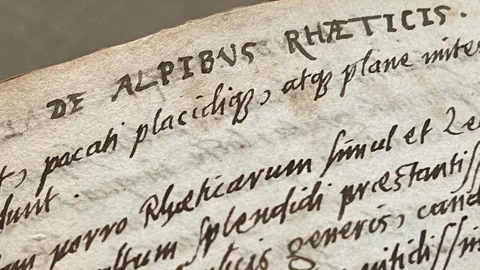 DE ALPIBVS RHÆTICIS.
t, pacati placidiq;, atq; plane mites
funt.
m porro Rhæticarum simul et Le
ltum splendidi præstantiss
icis generis, cand
nitidissi